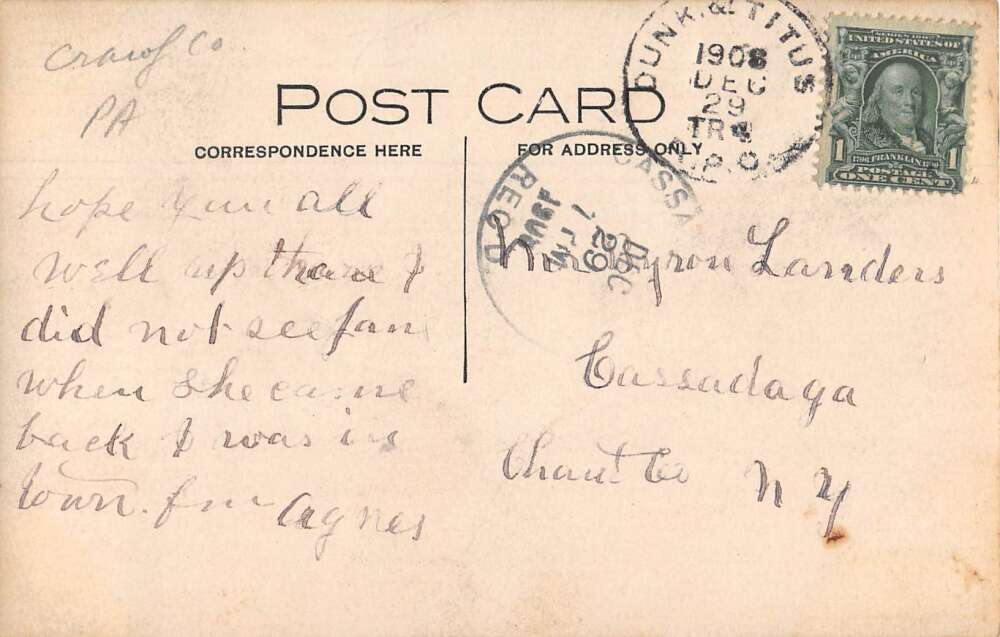 Crawf Co.
PA
POST CARD
CORRESPONDENCE HERE
FOR ADDRESS ONLY
DUNK. & TITUS
1908
DEC
29
TR 4
R.P.O.
SERIES 1902
UNITED STATES OF
AMERICA
1706 FRANKLIN 1790
POSTAGE
1 ONE CENT 1
CASSA
REC'D.
DEC
29
1
PM
1908
hope you all
well up there I
did not see fan
when she came
back I was in
town. from Agnes
Myron Landers
Cassadaga
Chaut Co N Y